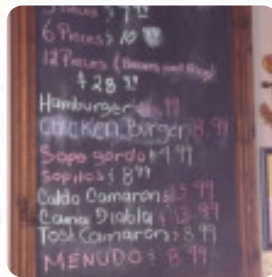 Pieces $ 7
6 Pieces $ 10
12 Pieces
$ 28
Hamburger 99
Chicken Burger 8.99
Sopo gordo $ 9 99
sopitos $ 8
Caldo Camaron $ 99
Cama Diabla $ 13.99
Tost Camaron $ 8 99
MENUDO $ 8.99